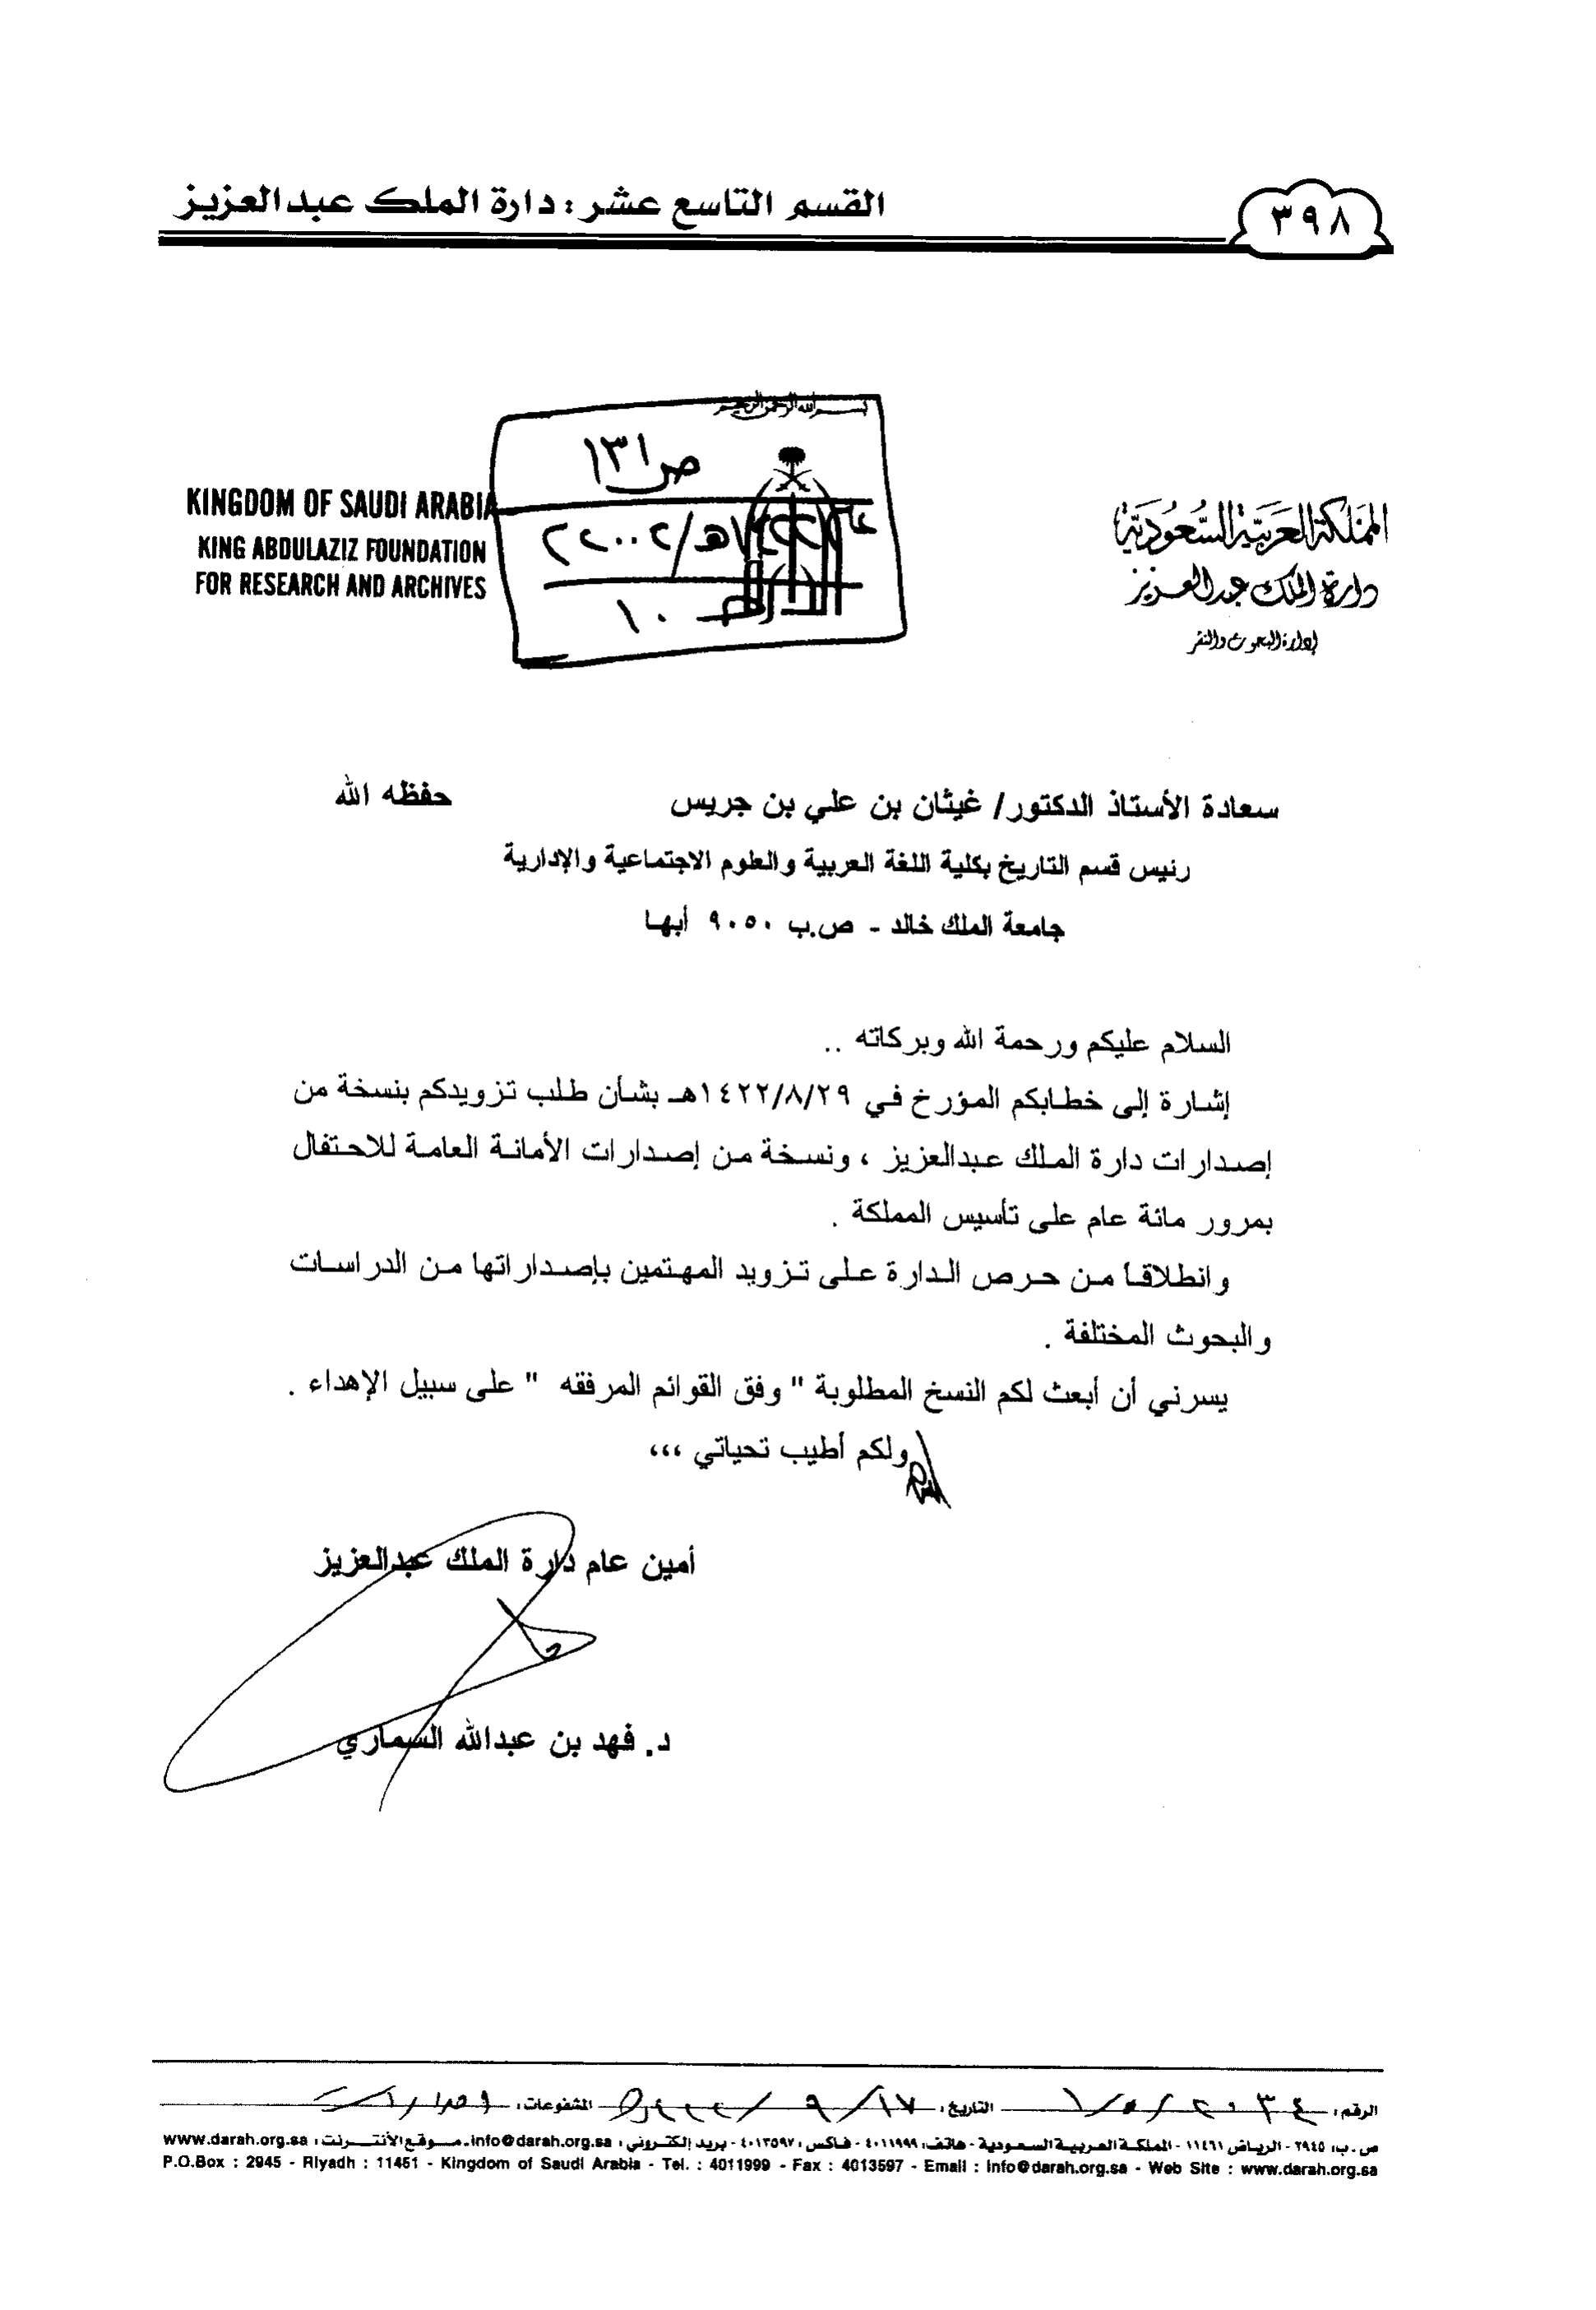 القسم التاسع عشر : دارة الملك عبدالعزيز
٣٩٨
بسم الله الرحمن الرحيم
ص ١٣١
١٠
KINGDOM OF SAUDI ARABIA
KING ABDULAZIZ FOUNDATION
FOR RESEARCH AND ARCHIVES
المملكة العربية السعودية
دارة الملك عبدالعزيز
إدارة البحوث والنشر
سعادة الأستاذ الدكتور/ غيثان بن علي بن جريس حفظه الله
رئيس قسم التاريخ بكلية اللغة العربية والعلوم الاجتماعية والإدارية
جامعة الملك خالد - ص.ب ٩٠٥٠ أبها
السلام عليكم ورحمة الله وبركاته ..
إشارة إلى خطابكم المؤرخ في ١٤٢٢/٨/٢٩هـ بشأن طلب تزويدكم بنسخة من
إصدارات دارة الملك عبدالعزيز ، ونسخة من إصدارات الأمانة العامة للاحتفال
بمرور مائة عام على تأسيس المملكة .
وانطلاقاً من حرص الدارة على تزويد المهتمين بإصداراتها من الدراسات
والبحوث المختلفة .
يسرني أن أبعث لكم النسخ المطلوبة " وفق القوائم المرفقه " على سبيل الإهداء .
ولكم أطيب تحياتي ،،،
أمين عام دارة الملك عبدالعزيز
د. فهد بن عبدالله السماري
الرقم: التاريخ: المشفوعات:
ص.ب: ٢٩٤٥ - الرياض ١١٤٦١ - المملكة العربية السعودية - هاتف: ٤٠١١٩٩٩ - فاكس: ٤٠١٣٥٩٧ - بريد إلكتروني: info@darah.org.sa. موقع الأنترنت: www.darah.org.sa
P.O.Box : 2945 - Riyadh : 11461 - Kingdom of Saudi Arabia - Tel. : 4011999 - Fax : 4013597 - Email : info@darah.org.sa - Web Site : www.darah.org.sa